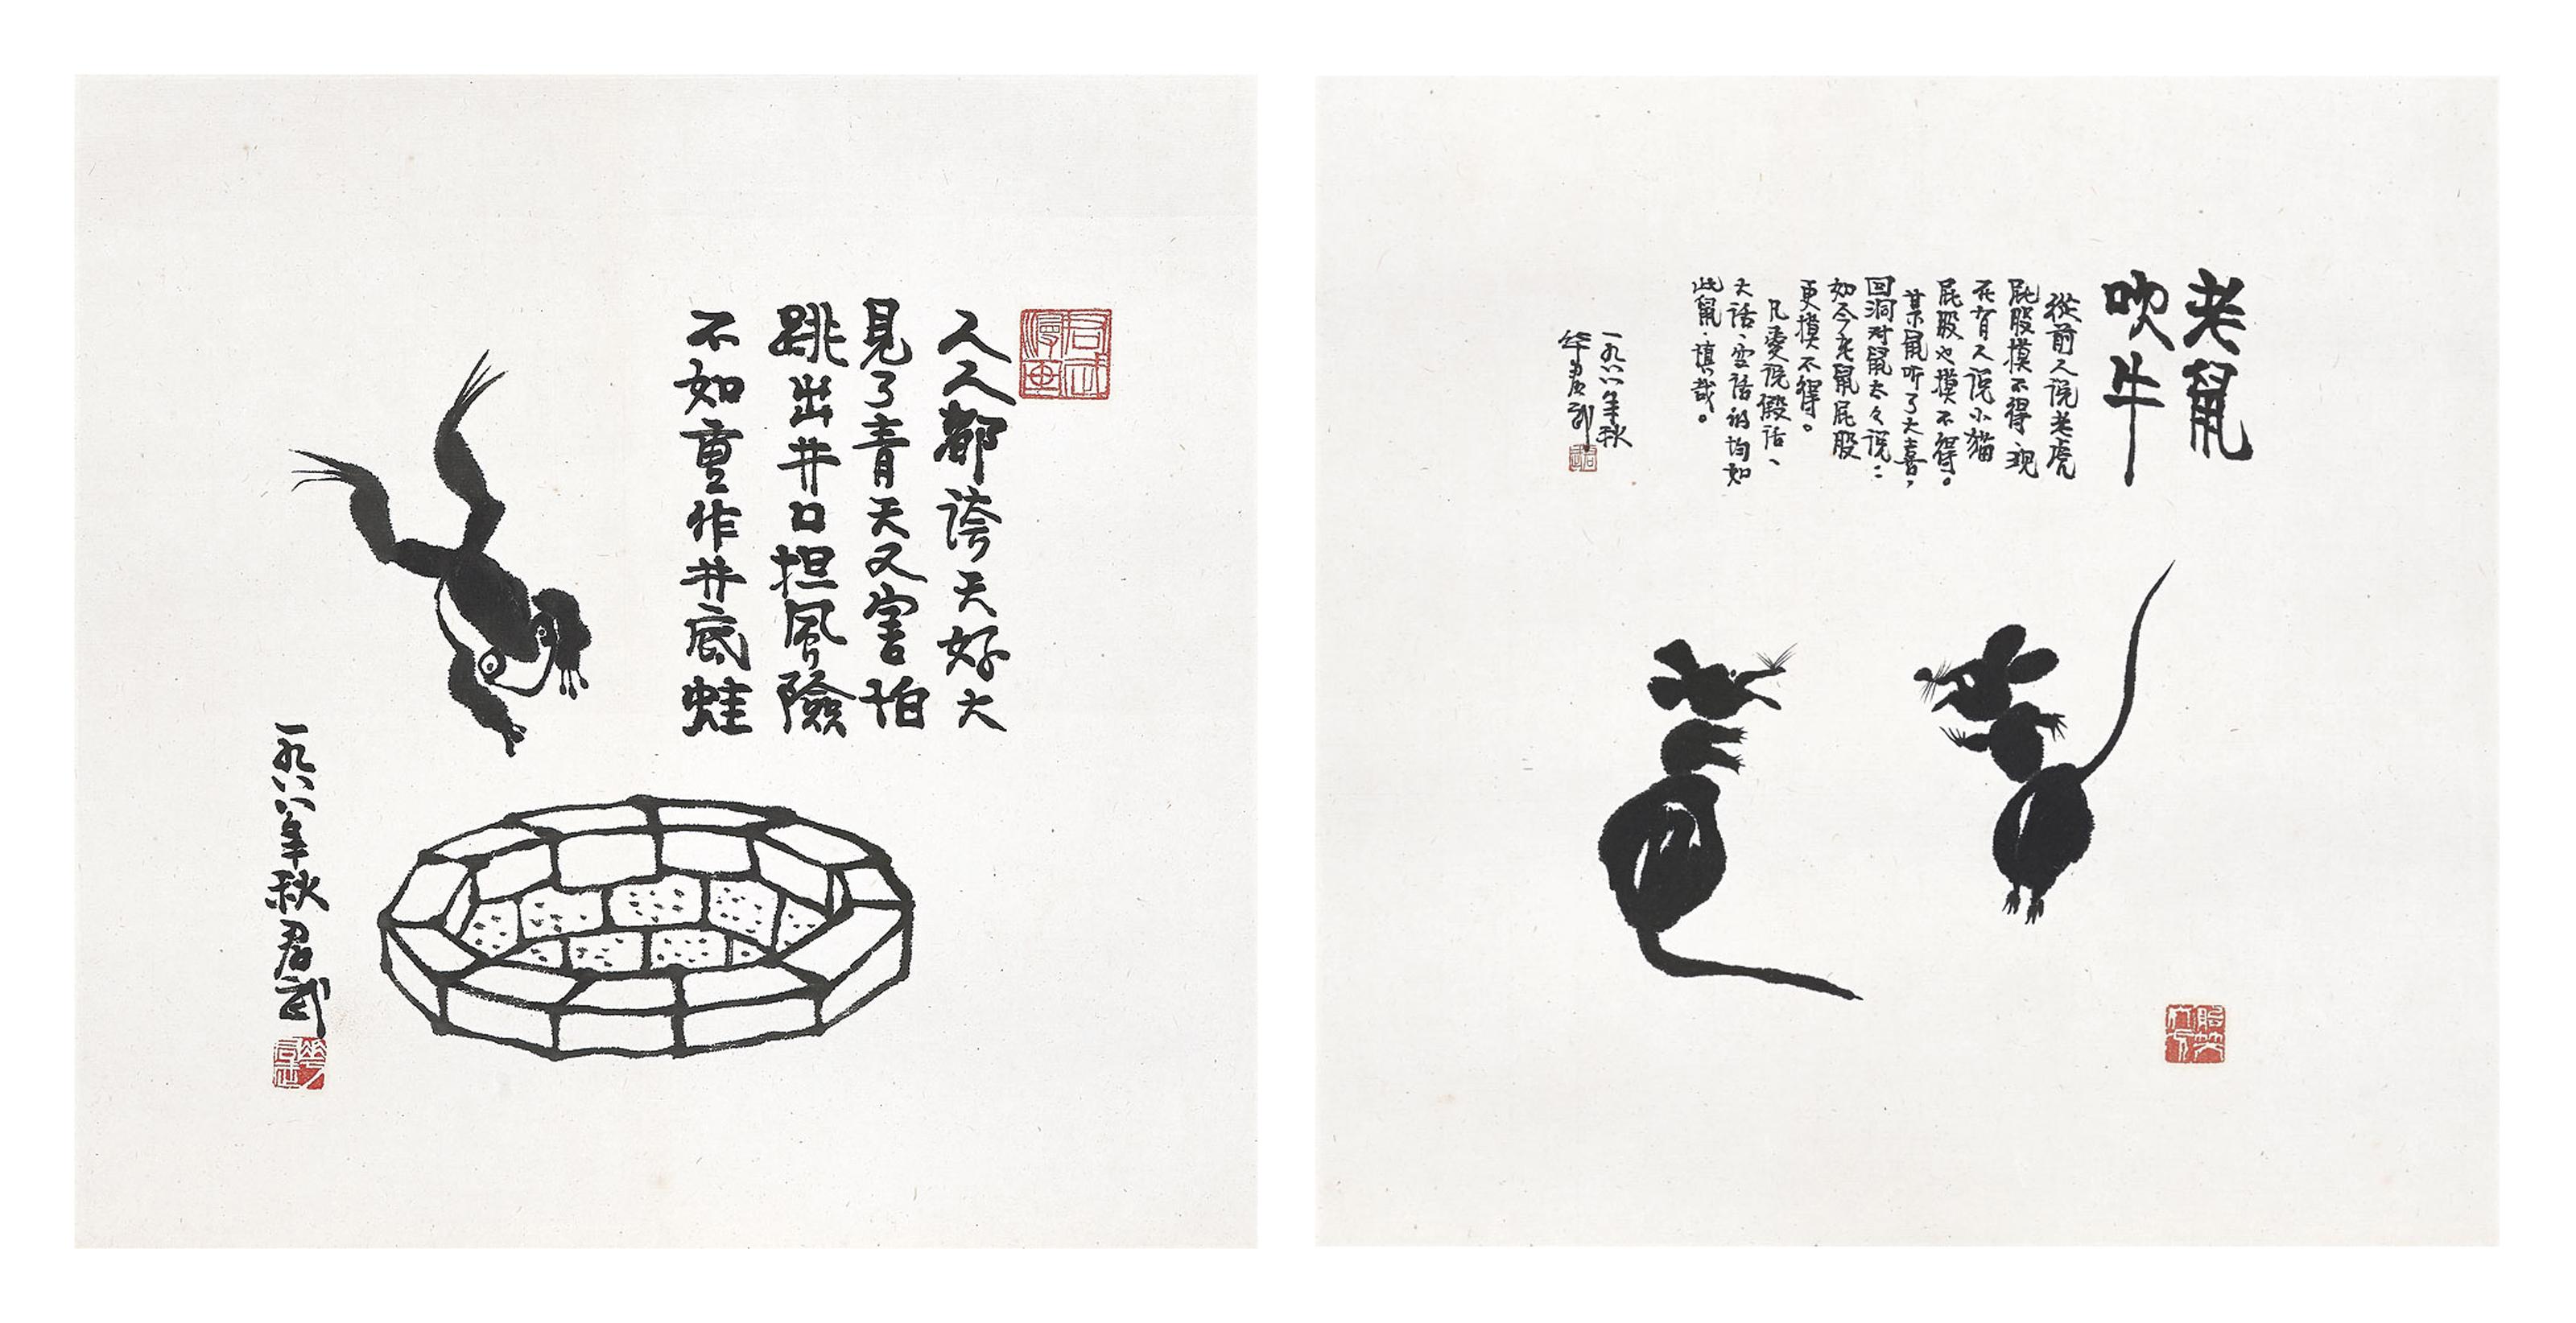 人人都誇天好大
見了青天又害怕
跳出井口担風險
不如重作井底蛙
一九八八年秋君武
君武漫画
華君武
老鼠
吹牛
從前人说老虎
屁股摸不得现
在有人说小猫
屁股也摸不得。
某鼠听了大喜，
回洞对鼠太々说：
如今老鼠屁股
更摸不得。
凡愛说假话、
大话、空话的均如
此鼠·慎哉。
一九八八年秋
华君武